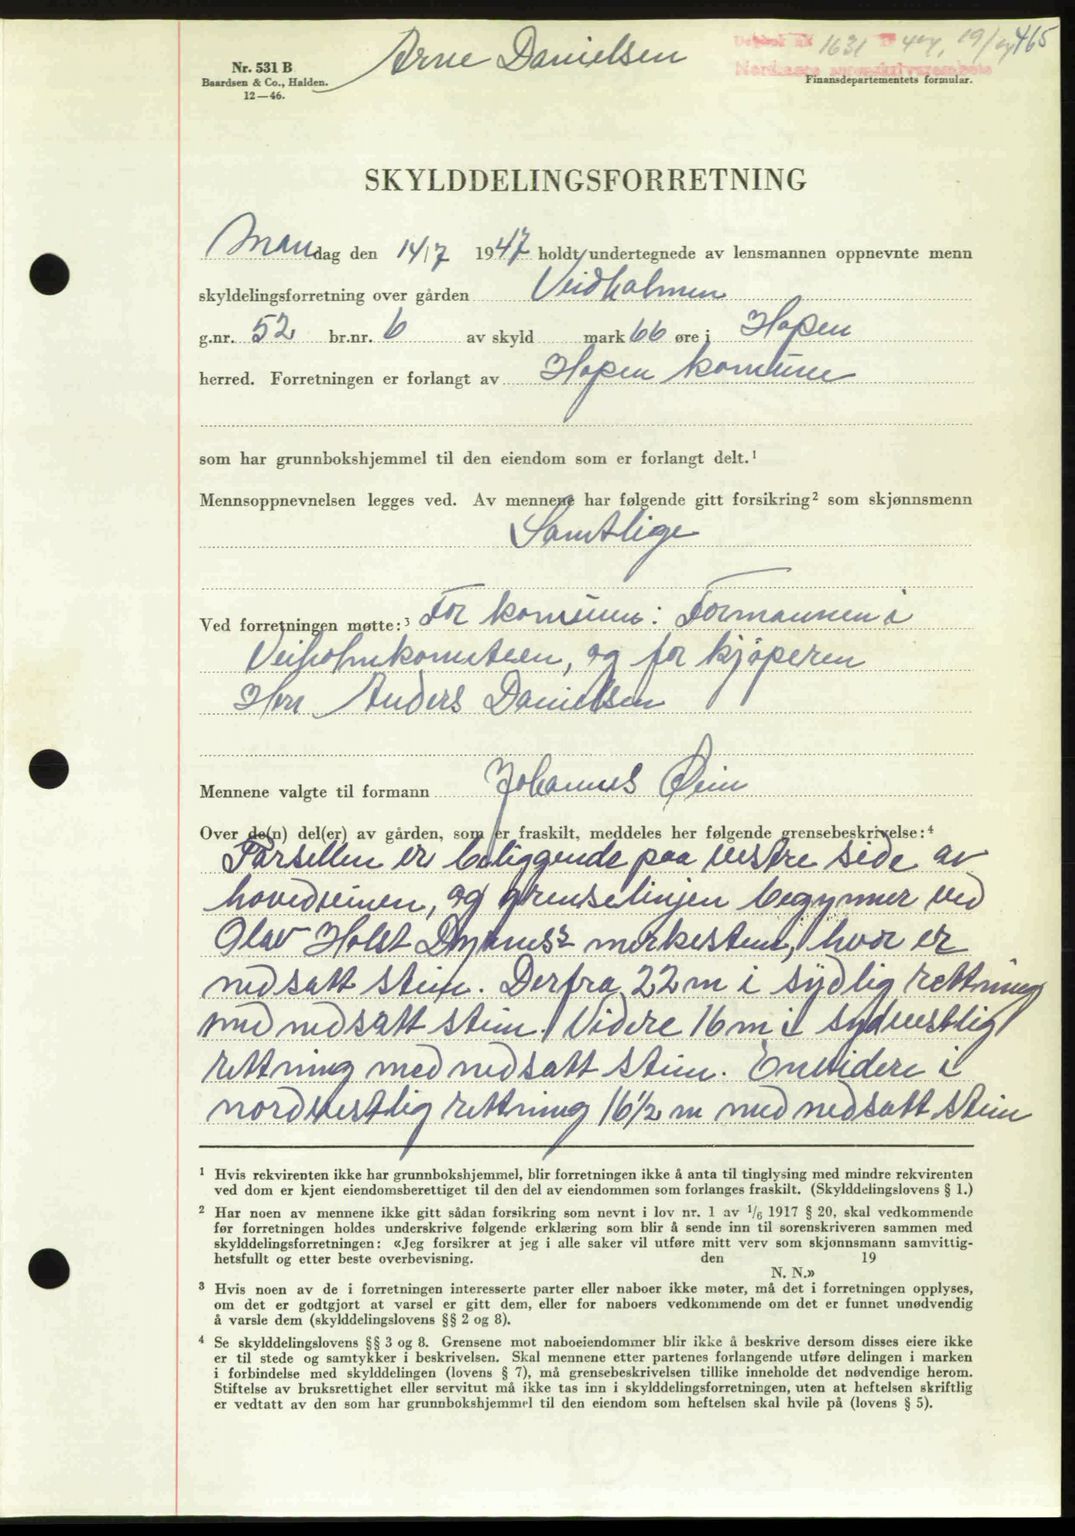 Arne Danielsen
Dagbok nr. 1631 1947, 19/7 465
Nordmøre sorenskriverembete
Nr. 531 B
Baardsen & Co., Halden.
12—46.
Finansdepartementets formular.
SKYLDDELINGSFORRETNING
Mandag den 14/7 1947 holdt undertegnede av lensmannen oppnevnte menn
skyldelingsforretning over gården Veidholmen
g.nr. 52 br.nr. 6 av skyld mark 66 øre i Hopen
herred. Forretningen er forlangt av Hopen komune
som har grunnbokshjemmel til den eiendom som er forlangt delt.¹
Mennsoppnevnelsen legges ved. Av mennene har følgende gitt forsikring² som skjønnsmenn
Samtlige
Ved forretningen møtte:³ For komunen: Formannen i
Veiholmkomiteen, og for kjøperen
Herr Anders Danielsen
Mennene valgte til formann Johannes Øien
Over de(n) del(er) av gården, som er fraskilt, meddeles her følgende grensebeskrivelse:⁴
Parsellen er beliggende paa vestre side av
hovedveien, og grenselinjen begynner ved
Olav Holst merkestein, hvor er
nedsatt stein. Derfra 22 m i sydlig rettning
med nedsatt stein. Videre 16 m i sydvestlig
rettning med nedsatt stein. Envidere i
nordvestlig rettning 16½ m med nedsatt stein
¹ Hvis rekvirenten ikke har grunnbokshjemmel, blir forretningen ikke å anta til tinglysing med mindre rekvirenten
ved dom er kjent eiendomsberettiget til den del av eiendommen som forlanges fraskilt. (Skylddelingslovens § 1.)
² Har noen av mennene ikke gitt sådan forsikring som nevnt i lov nr. 1 av 1/6 1917 § 20, skal vedkommende
før forretningen holdes underskrive følgende erklæring som blir å sende inn til sorenskriveren sammen med
skylddelingsforretningen: «Jeg forsikrer at jeg i alle saker vil utføre mitt verv som skjønnsmann samvittig-
hetsfullt og etter beste overbevisning. den 19
N. N.»
³ Hvis noen av de i forretningen interesserte parter eller naboer ikke møter, må det i forretningen opplyses,
om det er godtgjort at varsel er gitt dem, eller for naboers vedkommende om det er funnet unødvendig
å varsle dem (skylddelingslovens §§ 2 og 8).
⁴ Se skylddelingslovens §§ 3 og 8. Grensene mot naboeiendommer blir ikke å beskrive dersom disses eiere ikke
er til stede og samtykker i beskrivelsen. Skal mennene etter partenes forlangende utføre delingen i marken
i forbindelse med skylddelingen (lovens § 7), må grensebeskrivelsen tillike inneholde det nødvendige herom.
Stiftelse av bruksrettighet eller servitut må ikke tas inn i skylddelingsforretningen, uten at heftelsen skriftlig
er vedtatt av den som har grunnbokshjemmel til den eiendom som heftelsen skal hvile på (lovens § 5).